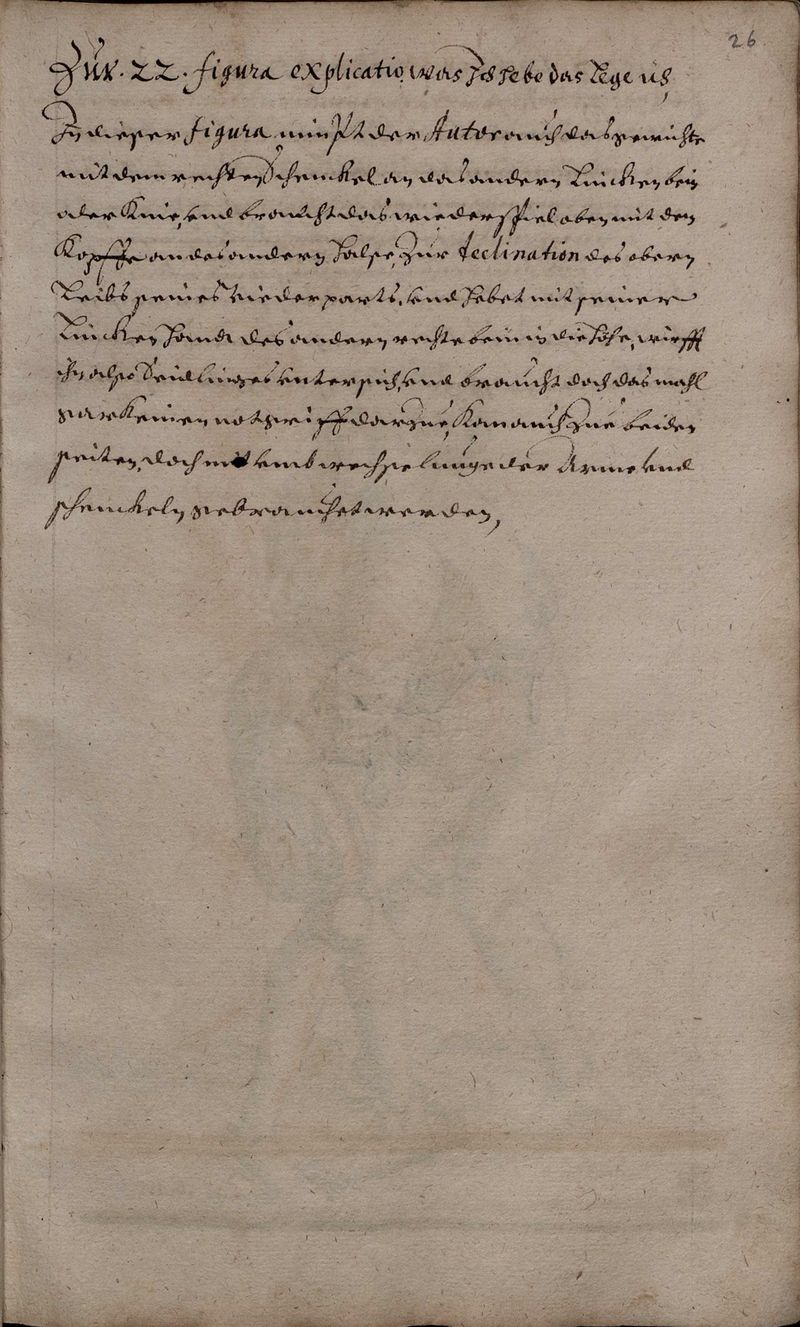 26
Zur . 22 . figura explicatio, was Ich hebe das lege ich
In dieser figura nimpt der Autor auch das gewichte
mit dem rechten Schenckel an das andern Lincken bein
oder Knie, und braucht das wiederspiel oben mit den
Kopffe an des andern halse, Zur declination des obern
Leibs seines wiederparts, und hebet mit seiner
Lincken handt des andern rechte bein in die höhe, wirfft
ihn also Seidlinges unter sich, und braucht doch das mahl
gar keinen notgriff darzue, Kan auch Zue beiden
seiten, doch mit umbwechselunge der Arme und
schenckeln gebrauchet werden,